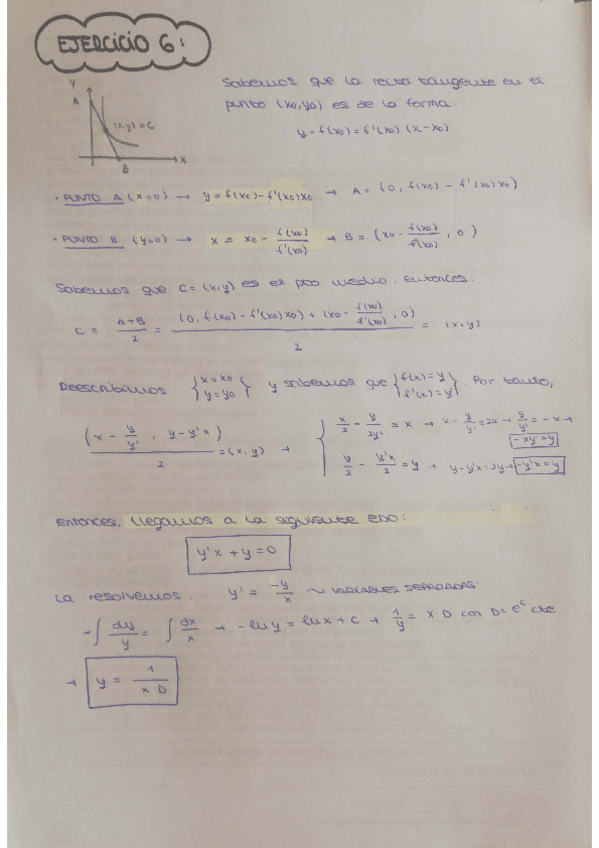 EJERCICIO 6:
Sabemos que la recta tangente en el
punto (x0,y0) es de la forma:
y-f(x0)=f'(x0)(x-x0)
Y
A
(x,y)=C
X
B
• PUNTO A (x=0) → y=f(x0)-f'(x0)x0 → A=(0, f(x0)-f'(x0)x0)
• PUNTO B (y=0) → x = x0 - f(x0)/f'(x0) → B = (x0 - f(x0)/f'(x0), 0)
Sabemos que C=(x,y) es el pto. medio, entonces:
C = A+B/2 = (0, f(x0)-f'(x0)x0) + (x0 - f(x0)/f'(x0), 0)/2 = (x,y)
Reescribimos {x=x0 y=y0} y sabemos que {f(x)=y f'(x)=y'}. Por tanto,
(x - y/y', y-y'x)/2 = (x,y) → { x/2 - y/2y' = x → x - y/y' = 2x → y/y' = -x →
-xy'=y
y/2 - y'x/2 = y → y-y'x=2y → -y'x=y
Entonces, llegamos a la siguiente EDO:
y'x+y=0
La resolvemos: y' = -y/x ~ VARIABLES SEPARADAS
-∫ dy/y = ∫ dx/x → -ln y = ln x + C → 1/y = x·D con D=e^c cte.
→ y = 1/x·D